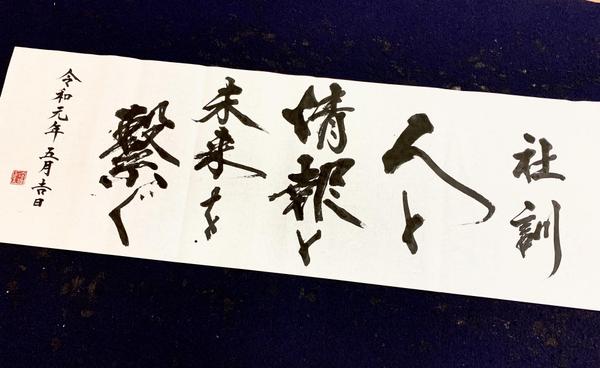 社訓
人と
情報と
未来を
繋ぐ
令和元年 五月吉日